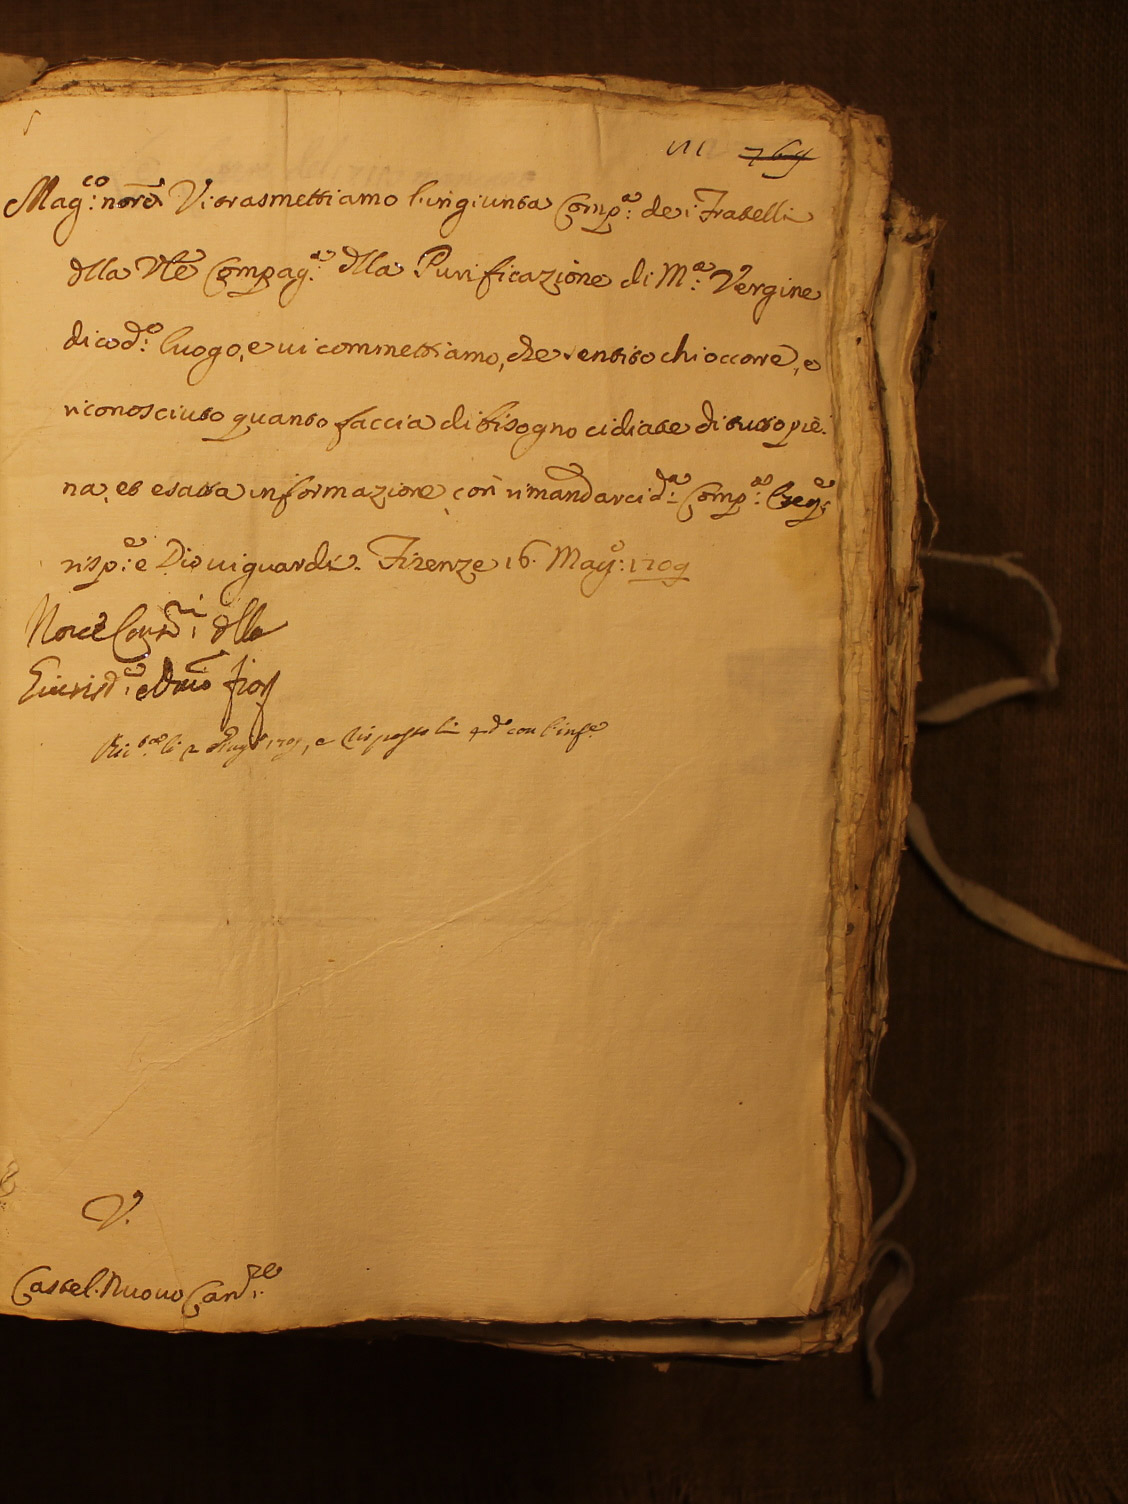 769
Mag:co nor̃e Vi trasmettiamo l'ingiunta Comp:a de i Fratelli
dlla Vle Compag:a dlla Purificazione di M:a Vergine
di cod:o luogo, e vi commettiamo, che sentito chi occorre, e
riconosciuto quanto faccia di bisogno ci diate di tutto pie:
na, et esatta informazione, con rimandarci d:a Comp:a e seg:e
risp:e e Dio vi guardi. Firenze 16. Mag:o 1709
dlla
fior
e risposto li d:o con l'inf:e
V.
Castel. Nuovo Can:re